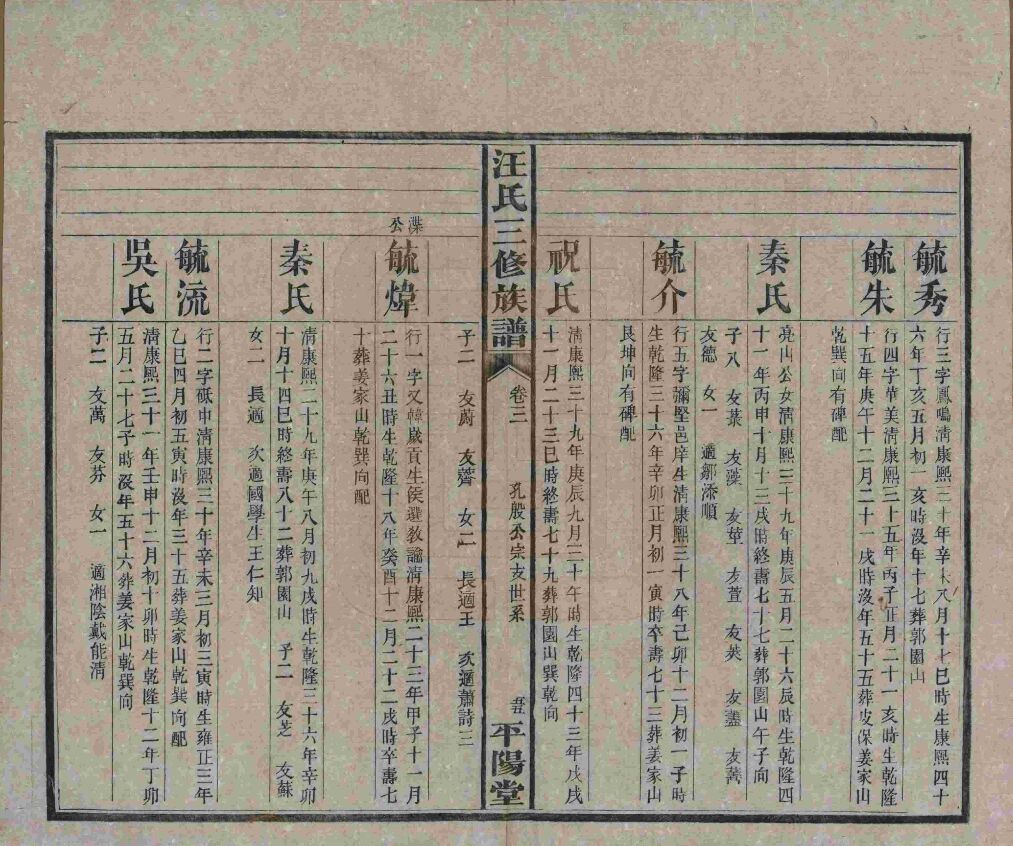 毓秀
行三字鳳鳴清康熙三十年辛未八月十七巳時生康熙四十
六年丁亥五月初一亥時沒年十七葬郭園山
毓朱
行四字華美清康熙三十五年丙子正月二十一亥時生乾隆
十五年庚午十二月二十一戌時沒年五十五葬皮保姜家山
乾巽向有碑配
秦氏
亮山公女清康熙三十九年庚辰五月二十六辰時生乾隆四
十一年丙申十月十三戌時終壽七十七葬郭園山午子向
子八 友葉 友藻 友華 友萱 友莢 友藎 友蔿
友德 女一 適鄒添順
毓介
行五字彌堅邑庠生清康熙三十八年己卯十二月初一子時
生乾隆三十六年辛卯正月初一寅時卒壽七十三葬姜家山
艮坤向有碑配
祝氏
清康熙三十九年庚辰九月三十午時生乾隆四十三年戊戌
十一月二十三巳時終壽七十九葬郭園山巽乾向
汪氏三修族譜 卷三 孔殷公宗支世系 平陽堂
子二 友蔚 友薺 女二 長適王 次適蕭詩三
渫公
毓煒
行一字又韓歲貢生侯選敎諭清康熙二十三年甲子十一月
二十六丑時生乾隆十八年癸酉十二月二十二戌時卒壽七
十葬姜家山乾巽向配
秦氏
清康熙二十九年庚午八月初九戌時生乾隆三十六年辛卯
十月十四巳時終壽八十二葬郭園山 子二 友芝 友蘇
女二 長適 次適國學生王仁知
毓流
行二字砥中清康熙三十年辛未三月初三寅時生雍正三年
乙巳四月初五寅時沒年三十五葬姜家山乾巽向配
吳氏
清康熙三十一年壬申十二月初十卯時生乾隆十二年丁卯
五月二十七子時沒年五十六葬姜家山乾巽向
子二 友萬 友芬 女一 適湘陰戴能清